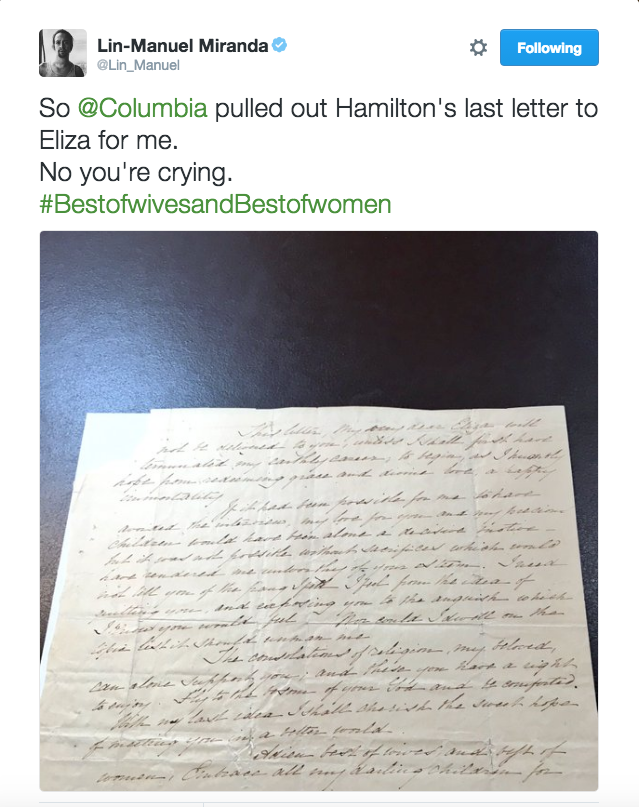 Lin-Manuel Miranda
@Lin_Manuel
Following
So @Columbia pulled out Hamilton's last letter to
Eliza for me.
No you're crying.
#BestofwivesandBestofwomen
This letter, my very dear Eliza, will
not be delivered to you, unless I shall first have
terminated my earthly career; to begin, as I humbly
hope from redeeming grace and divine love, a happy
immortality.
If it had been possible for me to have
avoided the interview, my love for you and my precious
children would have been alone a decisive motive.
But it was not possible, without sacrifices which would
have rendered me unworthy of your esteem. I need
not tell you of the pangs I feel, from the idea of
quitting you and exposing you to the anguish which
I know you would feel. Nor could I dwell on the
topic lest it should unman me.
The consolations of religion, my beloved,
can alone support you; and these you have a right
to enjoy. Fly to the bosom of your God and be comforted.
With my last idea, I shall cherish the sweet hope
of meeting you in a better world.
Adieu best of wives and best of
women. Embrace all my darling children for